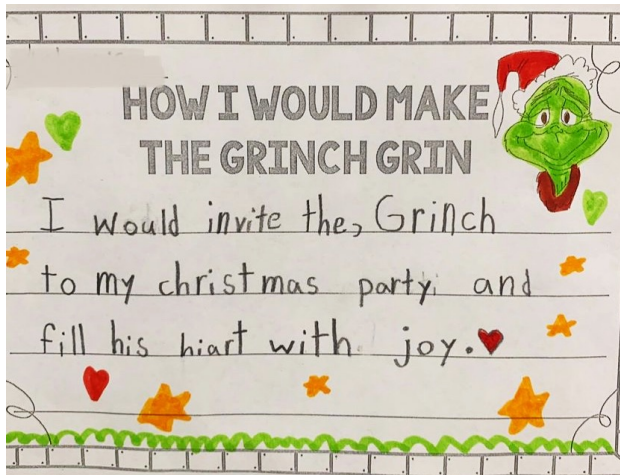 HOW I WOULD MAKE
THE GRINCH GRIN
I would invite the, Grinch
to my christmas party, and
fill his hiart with joy.